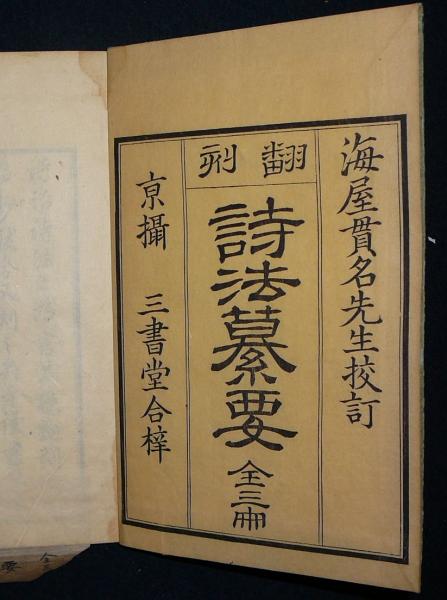 海屋貫名先生挍訂
翻刻
詩法纂要 全三冊
京攝 三書堂合梓